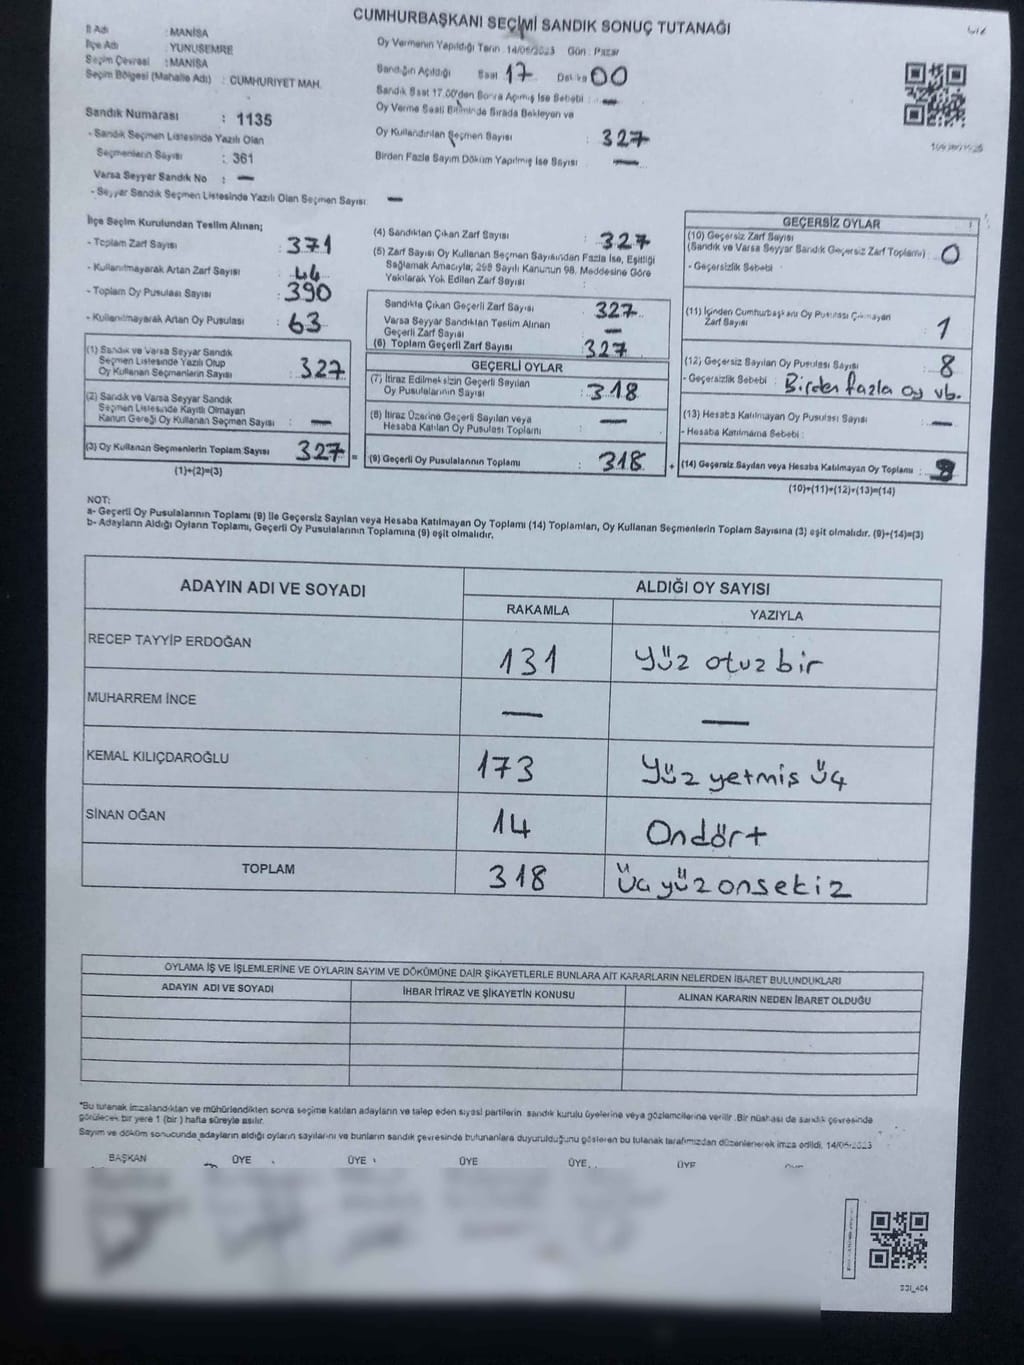 CUMHURBAŞKANI SEÇİMİ SANDIK SONUÇ TUTANAĞI
İl Adı : MANİSA
İlçe Adı : YUNUSEMRE
Seçim Çevresi : MANİSA
Seçim Bölgesi (Mahalle Adı) : CUMHURİYET MAH.
Oy Vermenin Yapıldığı Tarih : 14/05/2023 Gün : Pazar
Sandığın Açıldığı Saat 17 Dakika 00
Sandık Saat 17.00'den Sonra Açılmış İse Sebebi : —
Oy Verme Saati Bitiminde Sırada Bekleyen ve
Oy Kullandırılan Seçmen Sayısı : 327
Birden Fazla Sayım Döküm Yapılmış İse Sayısı —
Sandık Numarası : 1135
- Sandık Seçmen Listesinde Yazılı Olan
Seçmenlerin Sayısı : 361
Varsa Seyyar Sandık No : —
- Seyyar Sandık Seçmen Listesinde Yazılı Olan Seçmen Sayısı: —
İlçe Seçim Kurulundan Teslim Alınan;
- Toplam Zarf Sayısı : 371
- Kullanılmayarak Artan Zarf Sayısı : 44
- Toplam Oy Pusulası Sayısı : 390
- Kullanılmayarak Artan Oy Pusulası : 63
(1) Sandık ve Varsa Seyyar Sandık
Seçmen Listesinde Yazılı Olup
Oy Kullanan Seçmenlerin Sayısı : 327
(2) Sandık ve Varsa Seyyar Sandık
Seçmen Listesinde Kayıtlı Olmayan
Kanun Gereği Oy Kullanan Seçmen Sayısı : —
(3) Oy Kullanan Seçmenlerin Toplam Sayısı : 327 =
(1)+(2)=(3)
(4) Sandıktan Çıkan Zarf Sayısı : 327
(5) Zarf Sayısı Oy Kullanan Seçmen Sayısından Fazla İse, Eşitliği
Sağlamak Amacıyla; 298 Sayılı Kanunun 98. Maddesine Göre
Yakılarak Yok Edilen Zarf Sayısı :
Sandıkta Çıkan Geçerli Zarf Sayısı : 327
Varsa Seyyar Sandıktan Teslim Alınan
Geçerli Zarf Sayısı —
(6) Toplam Geçerli Zarf Sayısı : 327
GEÇERLİ OYLAR
(7) İtiraz Edilmeksizin Geçerli Sayılan
Oy Pusulalarının Sayısı : 318
(8) İtiraz Üzerine Geçerli Sayılan veya
Hesaba Katılan Oy Pusulası Toplamı : —
(9) Geçerli Oy Pusulalarının Toplamı : 318 +
GEÇERSİZ OYLAR
(10) Geçersiz Zarf Sayısı
(Sandık ve Varsa Seyyar Sandık Geçersiz Zarf Toplamı) : 0
- Geçersizlik Sebebi :
(11) İçinden Cumhurbaşkanı Oy Pusulası Çıkmayan
Zarf Sayısı : 1
(12) Geçersiz Sayılan Oy Pusulası Sayısı : 8
- Geçersizlik Sebebi : Birden fazla oy vb.
(13) Hesaba Katılmayan Oy Pusulası Sayısı : —
- Hesaba Katılmama Sebebi :
(14) Geçersiz Sayılan veya Hesaba Katılmayan Oy Toplamı :
(10)+(11)+(12)+(13)=(14)
NOT:
a- Geçerli Oy Pusulalarının Toplamı (9) ile Geçersiz Sayılan veya Hesaba Katılmayan Oy Toplamı (14) Toplamları, Oy Kullanan Seçmenlerin Toplam Sayısına (3) eşit olmalıdır. (9)+(14)=(3)
b- Adayların Aldığı Oyların Toplamı, Geçerli Oy Pusulalarının Toplamına (9) eşit olmalıdır.
ADAYIN ADI VE SOYADI ALDIĞI OY SAYISI
RAKAMLA YAZIYLA
RECEP TAYYİP ERDOĞAN 131 Yüz otuz bir
MUHARREM İNCE — —
KEMAL KILIÇDAROĞLU 173 Yüz yetmis üç
SİNAN OĞAN 14 Ondört
TOPLAM 318 Üçyüzonsekiz
OYLAMA İŞ VE İŞLEMLERİNE VE OYLARIN SAYIM VE DÖKÜMÜNE DAİR ŞİKAYETLERLE BUNLARA AİT KARARLARIN NELERDEN İBARET BULUNDUKLARI
ADAYIN ADI VE SOYADI İHBAR İTİRAZ VE ŞİKAYETİN KONUSU ALINAN KARARIN NEDEN İBARET OLDUĞU
*Bu tutanak imzalandıktan ve mühürlendikten sonra seçime katılan adayların ve talep eden siyasi partilerin sandık kurulu üyelerine veya gözlemcilerine verilir. Bir nüshası da sandık çevresinde
görülecek bir yere 1 (bir) hafta süreyle asılır.
Sayım ve döküm sonucunda adayların aldığı oyların sayılarını ve bunların sandık çevresinde bulunanlara duyurulduğunu gösteren bu tutanak tarafımızdan düzenlenerek imza edildi. 14/05/2023
BAŞKAN ÜYE ÜYE ÜYE ÜYE ÜYE